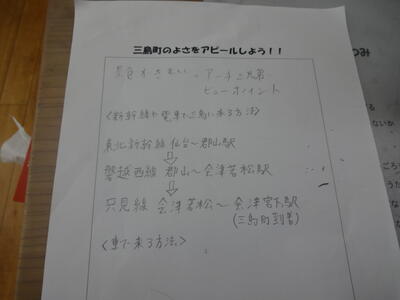 三島町のよさをアピールしよう！！
景色がきれい → アーチ三兄弟
ビューポイント
〈新幹線や電車で三島に来る方法〉
東北新幹線 仙台～郡山駅
⇩
磐越西線 郡山～会津若松駅
⇩
只見線 会津若松～会津宮下駅
(三島町到着)
〈車で来る方法〉